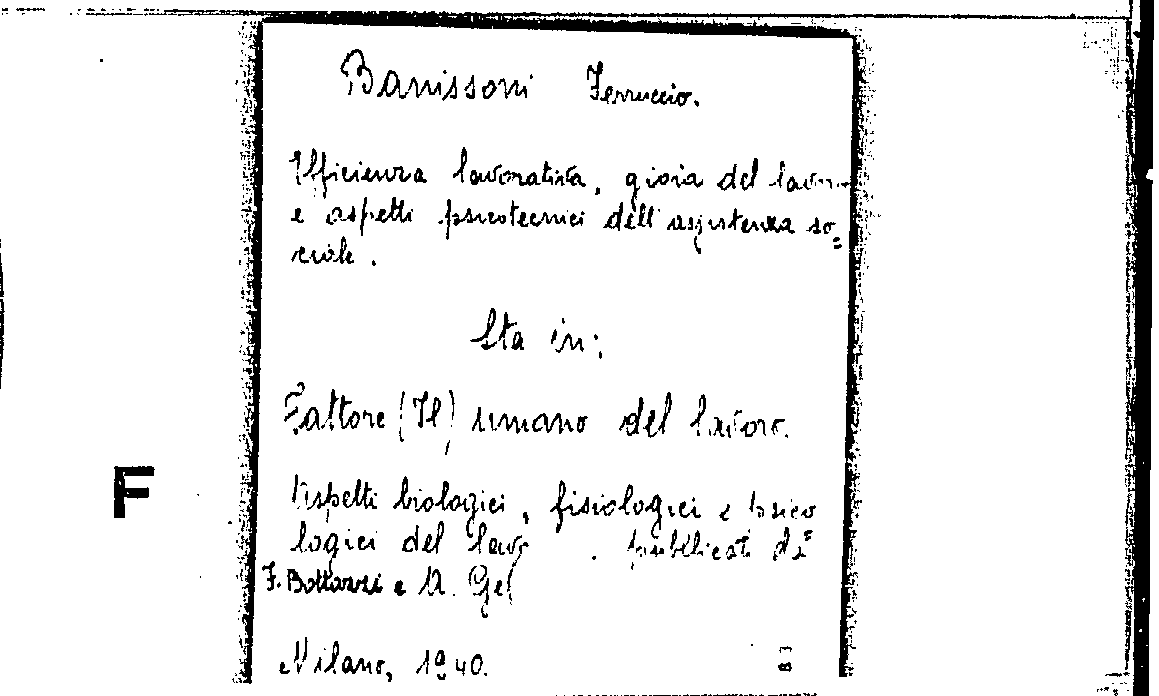 Banissoni Ferruccio.
Efficienza lavorativa, gioia del lavoro
e aspetti psicotecnici dell'assistenza so=
ciale.
Sta in:
Fattore (Il) umano del lavoro.
F
Aspetti biologici, fisiologici e psico
logici del lavo . pubblicati da
F. Bottazzi e A. Gel
Milano, 1940.